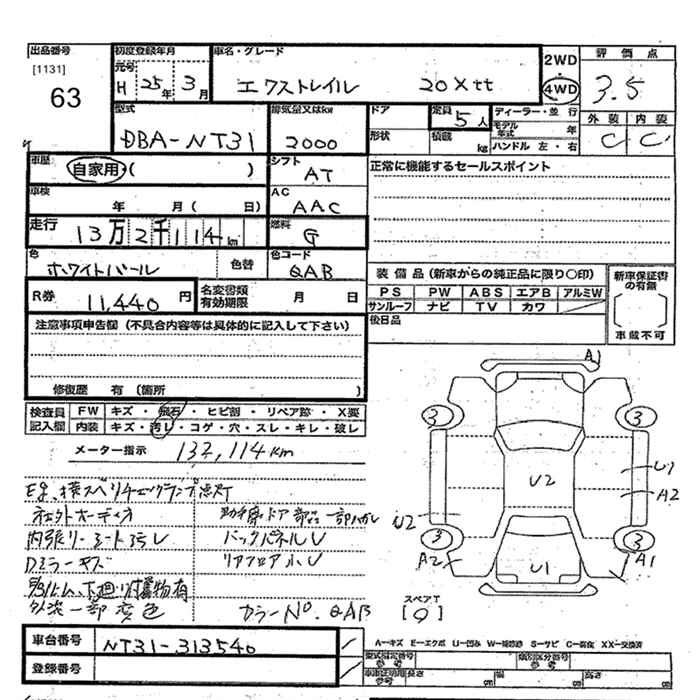 出品番号 [1131] 63
初度登録年月 元号 H 25年 3月
車名・グレード エクストレイル 20Xtt
2WD 4WD
評価点 3.5
型式 DBA-NT31
排気量又はkw 2000
ドア 形状
定員 5人 積載 kg
ディーラー・並行
モデル年式 年
ハンドル 左・右
外装 内装
C C
車歴 自家用・( )
シフト AT
正常に機能するセールスポイント
車検 年 月( 日)
AC AAC
走行 13万2千114km
燃料 G
色 ホワイトパール 色替
色コード QAB
装備品(新車からの純正品に限り〇印)
PS PW ABS エアB アルミW
サンルーフ ナビ TV カワ
後日品
新車保証書の有無
車載不可
R券 11,440円
名変書類有効期限 月 日
注意事項申告欄(不具合内容等は具体的に記入して下さい)
修復歴 有 〔箇所 〕
検査員記入欄
FW キズ・飛石・ヒビ割・リペア跡・X要
内装 キズ・汚レ・コゲ・穴・スレ・キレ・破レ
メーター指示 132,114km
社外オーディオ
内張リ・シート汚レ
バックパネルU
Dミラーキズ
リアフロア小U
下廻リ付着物有
外装一部変色
カラーNo. QAB
A1
3 3
U2
U1
A2
U2
3 3
A2 A1
U1
スペアT
[9]
車台番号 NT31-313540
登録番号
A…キズ E…エクボ U…凹み W…補修跡 S…サビ C…腐食 XX…交換済
型式指定番号 参考
類別区分番号 参考
車車証明用長さ 参考 cm 幅 cm 高さ cm